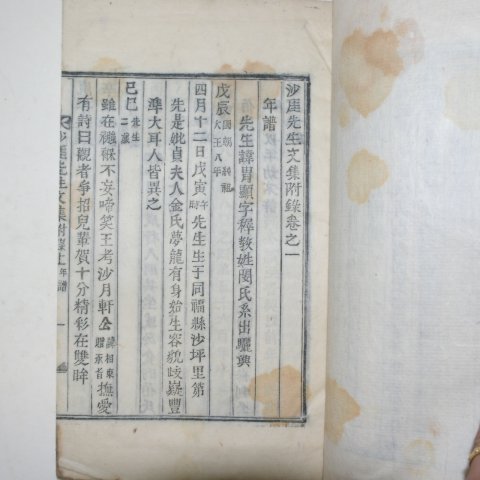 沙厓先生文集附錄卷之一
年譜
先生諱冑顯字釋敎姓閔氏系出驪興
戊辰 國朝純祖大王八年
四月十二日戊寅午時先生生于同福縣沙坪里第
先是妣貞夫人金氏夢龍有身始生容貌岐嶷豐
準大耳人皆異之
己巳 先生二歲
雖在襁褓不妄啼笑王考沙月軒公 撫愛
有詩曰觀者爭招兒輩賀十分精彩在雙眸
沙厓先生文集附錄上 年譜 一